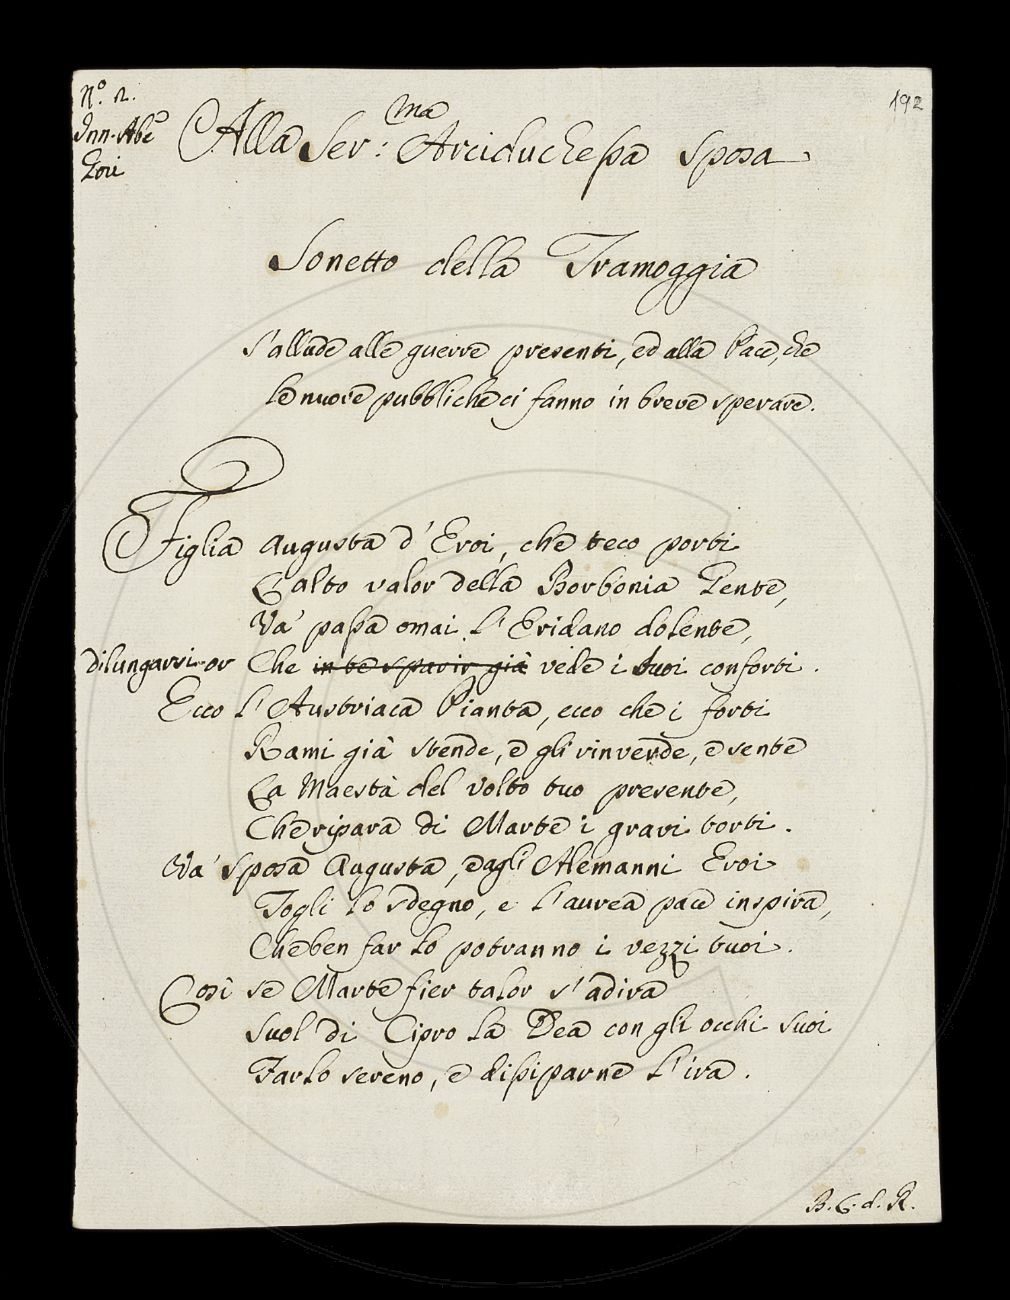 N.º 2.
192
Inn. Abe
Alla Ser:ma Arciduchessa Sposa
Sonetto della Tramoggia
S'allude alle guerre presenti, ed alla Pace, che
le nuove pubbliche ci fanno in breve sperare.
Figlia Augusta d'Eroi, che teco porti
L'alto valor della Borbonia Gente,
Và passa omai l'Eridano dolente,
dilungarsi or Che in te sparir già vede i tuoi conforti.
Ecco l'Austriaca Pianta, ecco che i forti
Rami già stende, e gli rinverde, e sente
La Maestà del Volto tuo presente,
Che ripara di Marte i gravi torti.
Và Sposa Augusta, e agli Alemanni Eroi
Togli lo sdegno, e l'aurea pace inspira,
Che ben far lo potranno i vezzi tuoi.
Così se Marte fier talor s'adira
Suol di Cipro la Dea con gli occhi suoi
Farlo sereno, e dissiparne l'ira.
B. G. d. R.